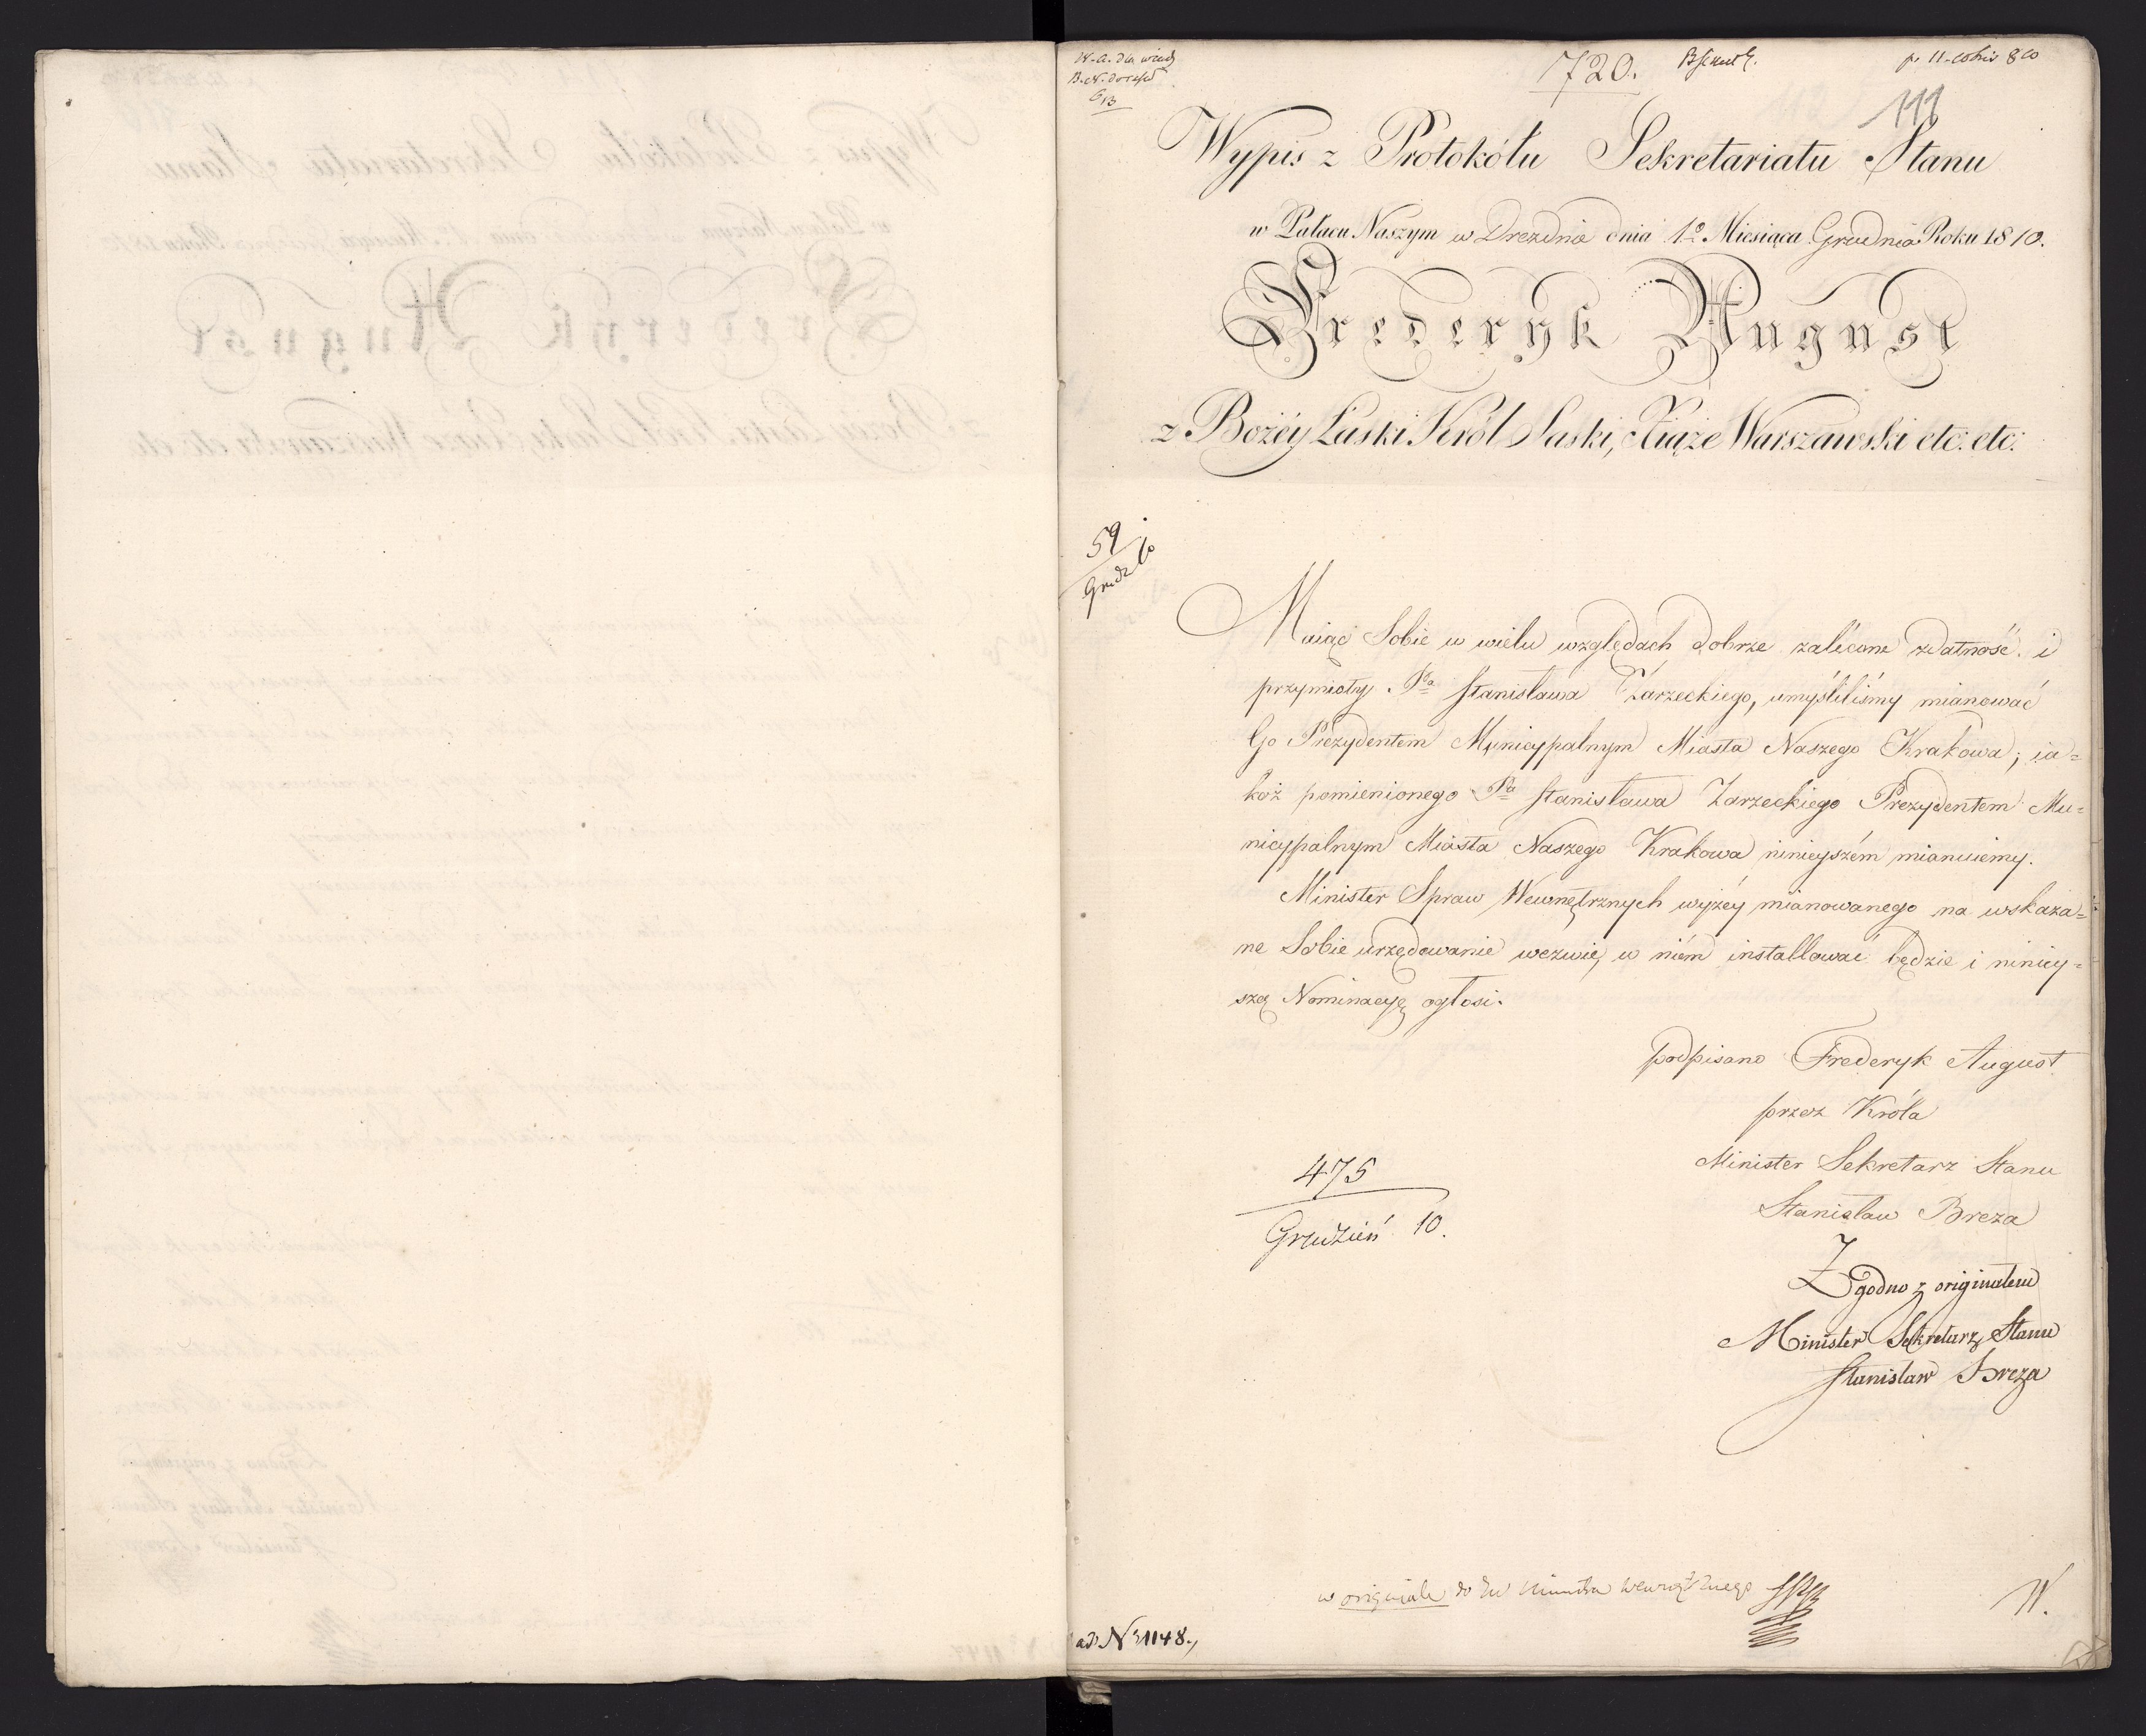 720.
111
Wypis z Protokółu Sekretariatu Stanu
w Pałacu Naszym w Dreznie dnia 1º Miesiąca Grudnia Roku 1810.
Frederyk August
z Bożéy Łaski Król Saski, Xiąże Warszawski etc: etc:
59
Grudz 10
Maiąc Sobie w wielu względach dobrze zalécone zdatność i
przymioty Pa Stanisława Zarzeckiego, umyśliliśmy mianować
Go Prezydentem Municypalnym Miasta Naszego Krakowa; ia=
koż pomienionego Pa Stanisława Zarzeckiego Prezydentem Mu=
nicypalnym Miasta Naszego Krakowa ninieyszém mianuiemy.
Minister Spraw Wewnętrznych wyżéy mianowanego na wskaza=
ne Sobie urzędowanie wezwie, w niém installować będzie i niniey=
szą Nominacyę ogłosi.
podpisano Frederyk August
przez Króla
Minister Sekretarz Stanu
Stanisław Breza
475
Grudzień 10.
Zgodno z originałem
Minister Sekretarz Stanu
Stanisław Breza
w originale do Ministra Wewnętrznego
W.
ad Nº 1148.